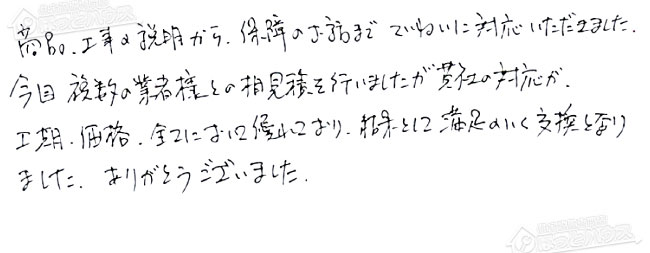 商品、工事の説明から、保障のお話まで ていねいに対応いただきました。
今回 複数の業者様との相見積を行いましたが貴社の対応が、
工期、価格、全てにおいて優れており、結果として満足のいく交換と到り
ました。ありがとうございました。